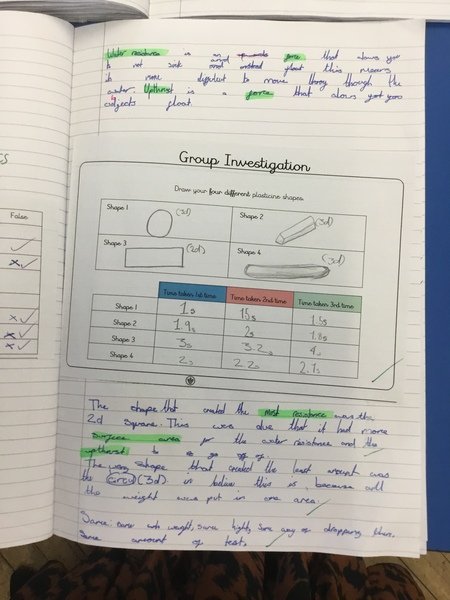 Water resistance is an force that slows you
to not sink and instead float this means
it more difficult to move through the
water. Upthrust is a force that alows
objects float.
False
Group Investigation
Draw your four different plasticine shapes.
Shape 1 (3d)
Shape 2 (3d)
Shape 3 (2d)
Shape 4 (3d)
Time taken 1st time Time taken 2nd time Time taken 3rd time
Shape 1 1s 15s 1.5s
Shape 2 1.9s 2s 1.8s
Shape 3 3s 3.2s 4s
Shape 4 2s 2.2s 2.1s
The shape that created the most resistance was the
2d square. This was due that it had more
surface area for the water resistance and the
upthrust to
The shape that created the least amount was
the (3d). believe this is because all
the weight was put in one area.
Same weight, same hight, same way of dropping them.
Same amount of tests.